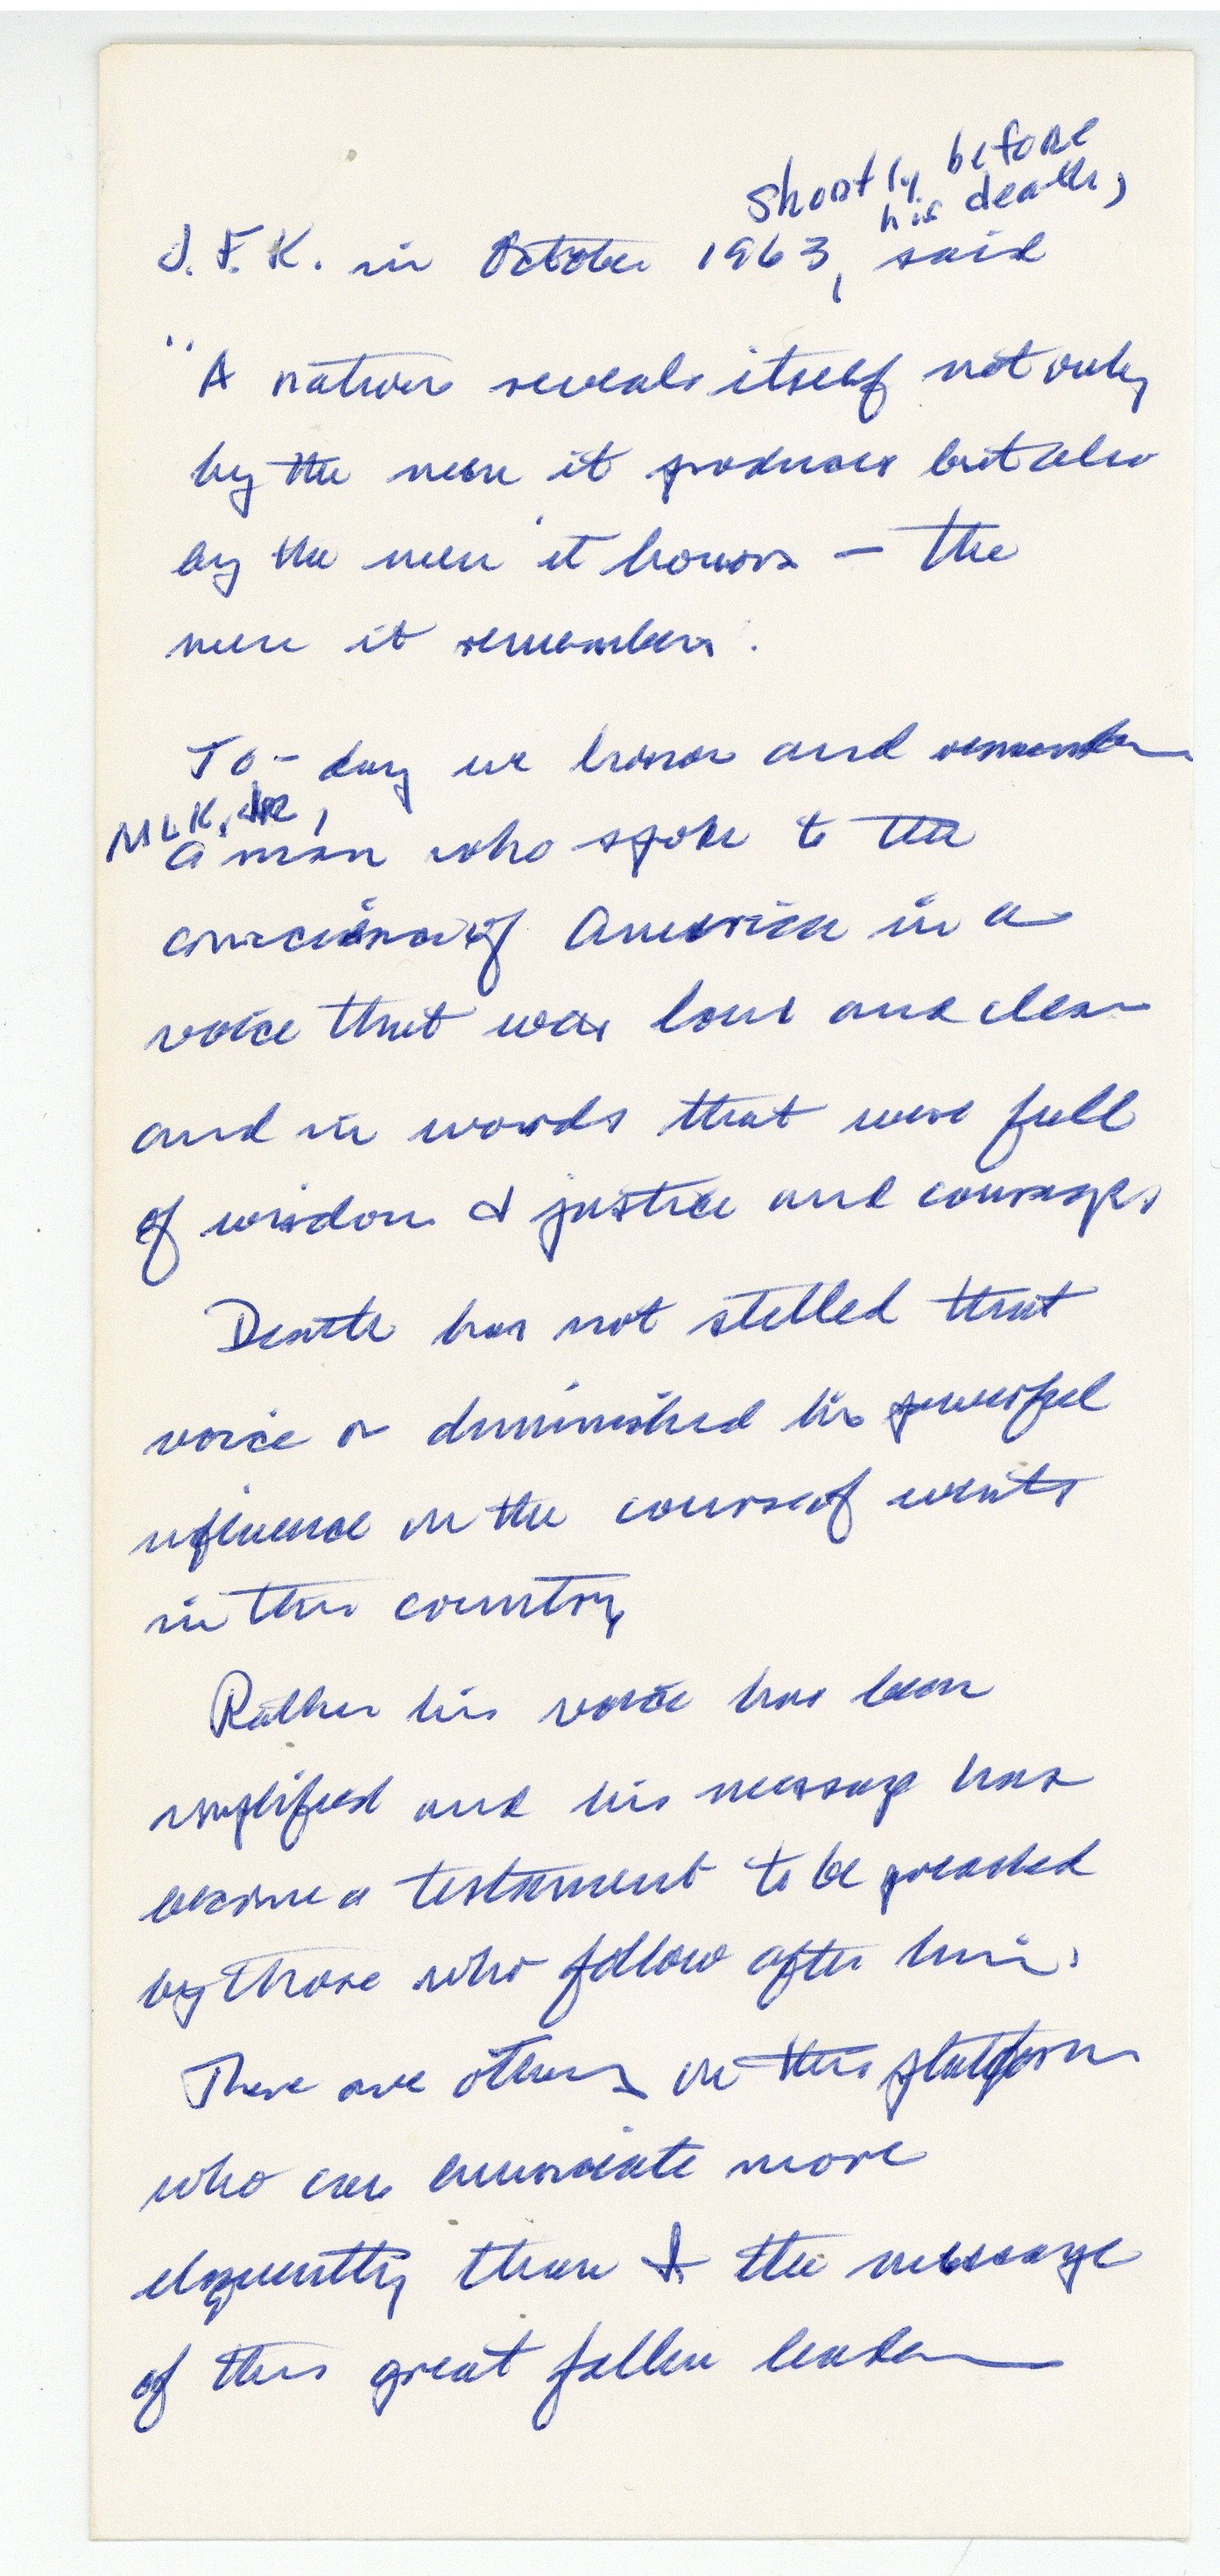 shortly before
his death,
J.F.K. in October 1963, said
"A nation reveals itself not only
by the men it produces but also
by the men it honors - the
men it remembers".
To-day we honor and remember
MLK, JR,
a man who spoke to the
conscience of America in a
voice that was loud and clear
and in words that were full
of wisdom & justice and courage.
Death has not stilled that
voice or diminished his powerful
influence on the course of events
in this country
Rather his voice has been
amplified and his message has
become a testament to be preached
by those who follow after him.
There are others on this platform
who can enunciate more
eloquently than I the message
of this great fallen leader